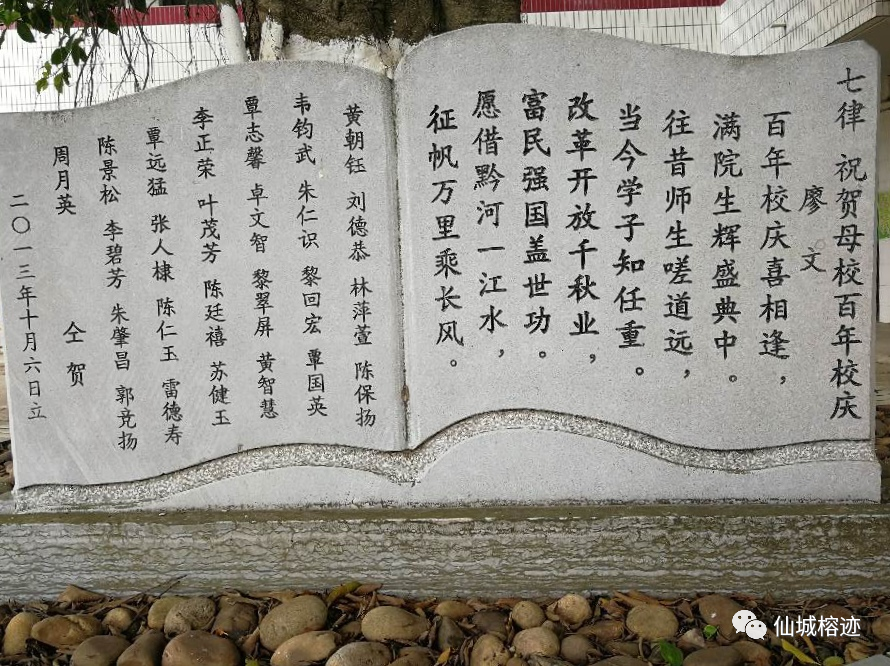 七律 祝贺母校百年校庆
廖文
百年校庆喜相逢，
满院生辉盛典中。
往昔师生嗟道远，
当今学子知任重。
改革开放千秋业，
富民强国盖世功。
愿借黔河一江水，
征帆万里乘长风。
黄朝钰 刘德恭 林萍萱 陈保扬
韦钧武 朱仁识 黎回宏 覃国英
覃志馨 卓文智 黎翠屏 黄智慧
李正荣 叶茂芳 陈廷禧 苏健玉
覃远猛 张人棣 陈仁玉 雷德寿
陈景松 李碧芳 朱肇昌 郭竞扬
周月英 仝贺
二〇一三年十月六日立
仙城榕迹